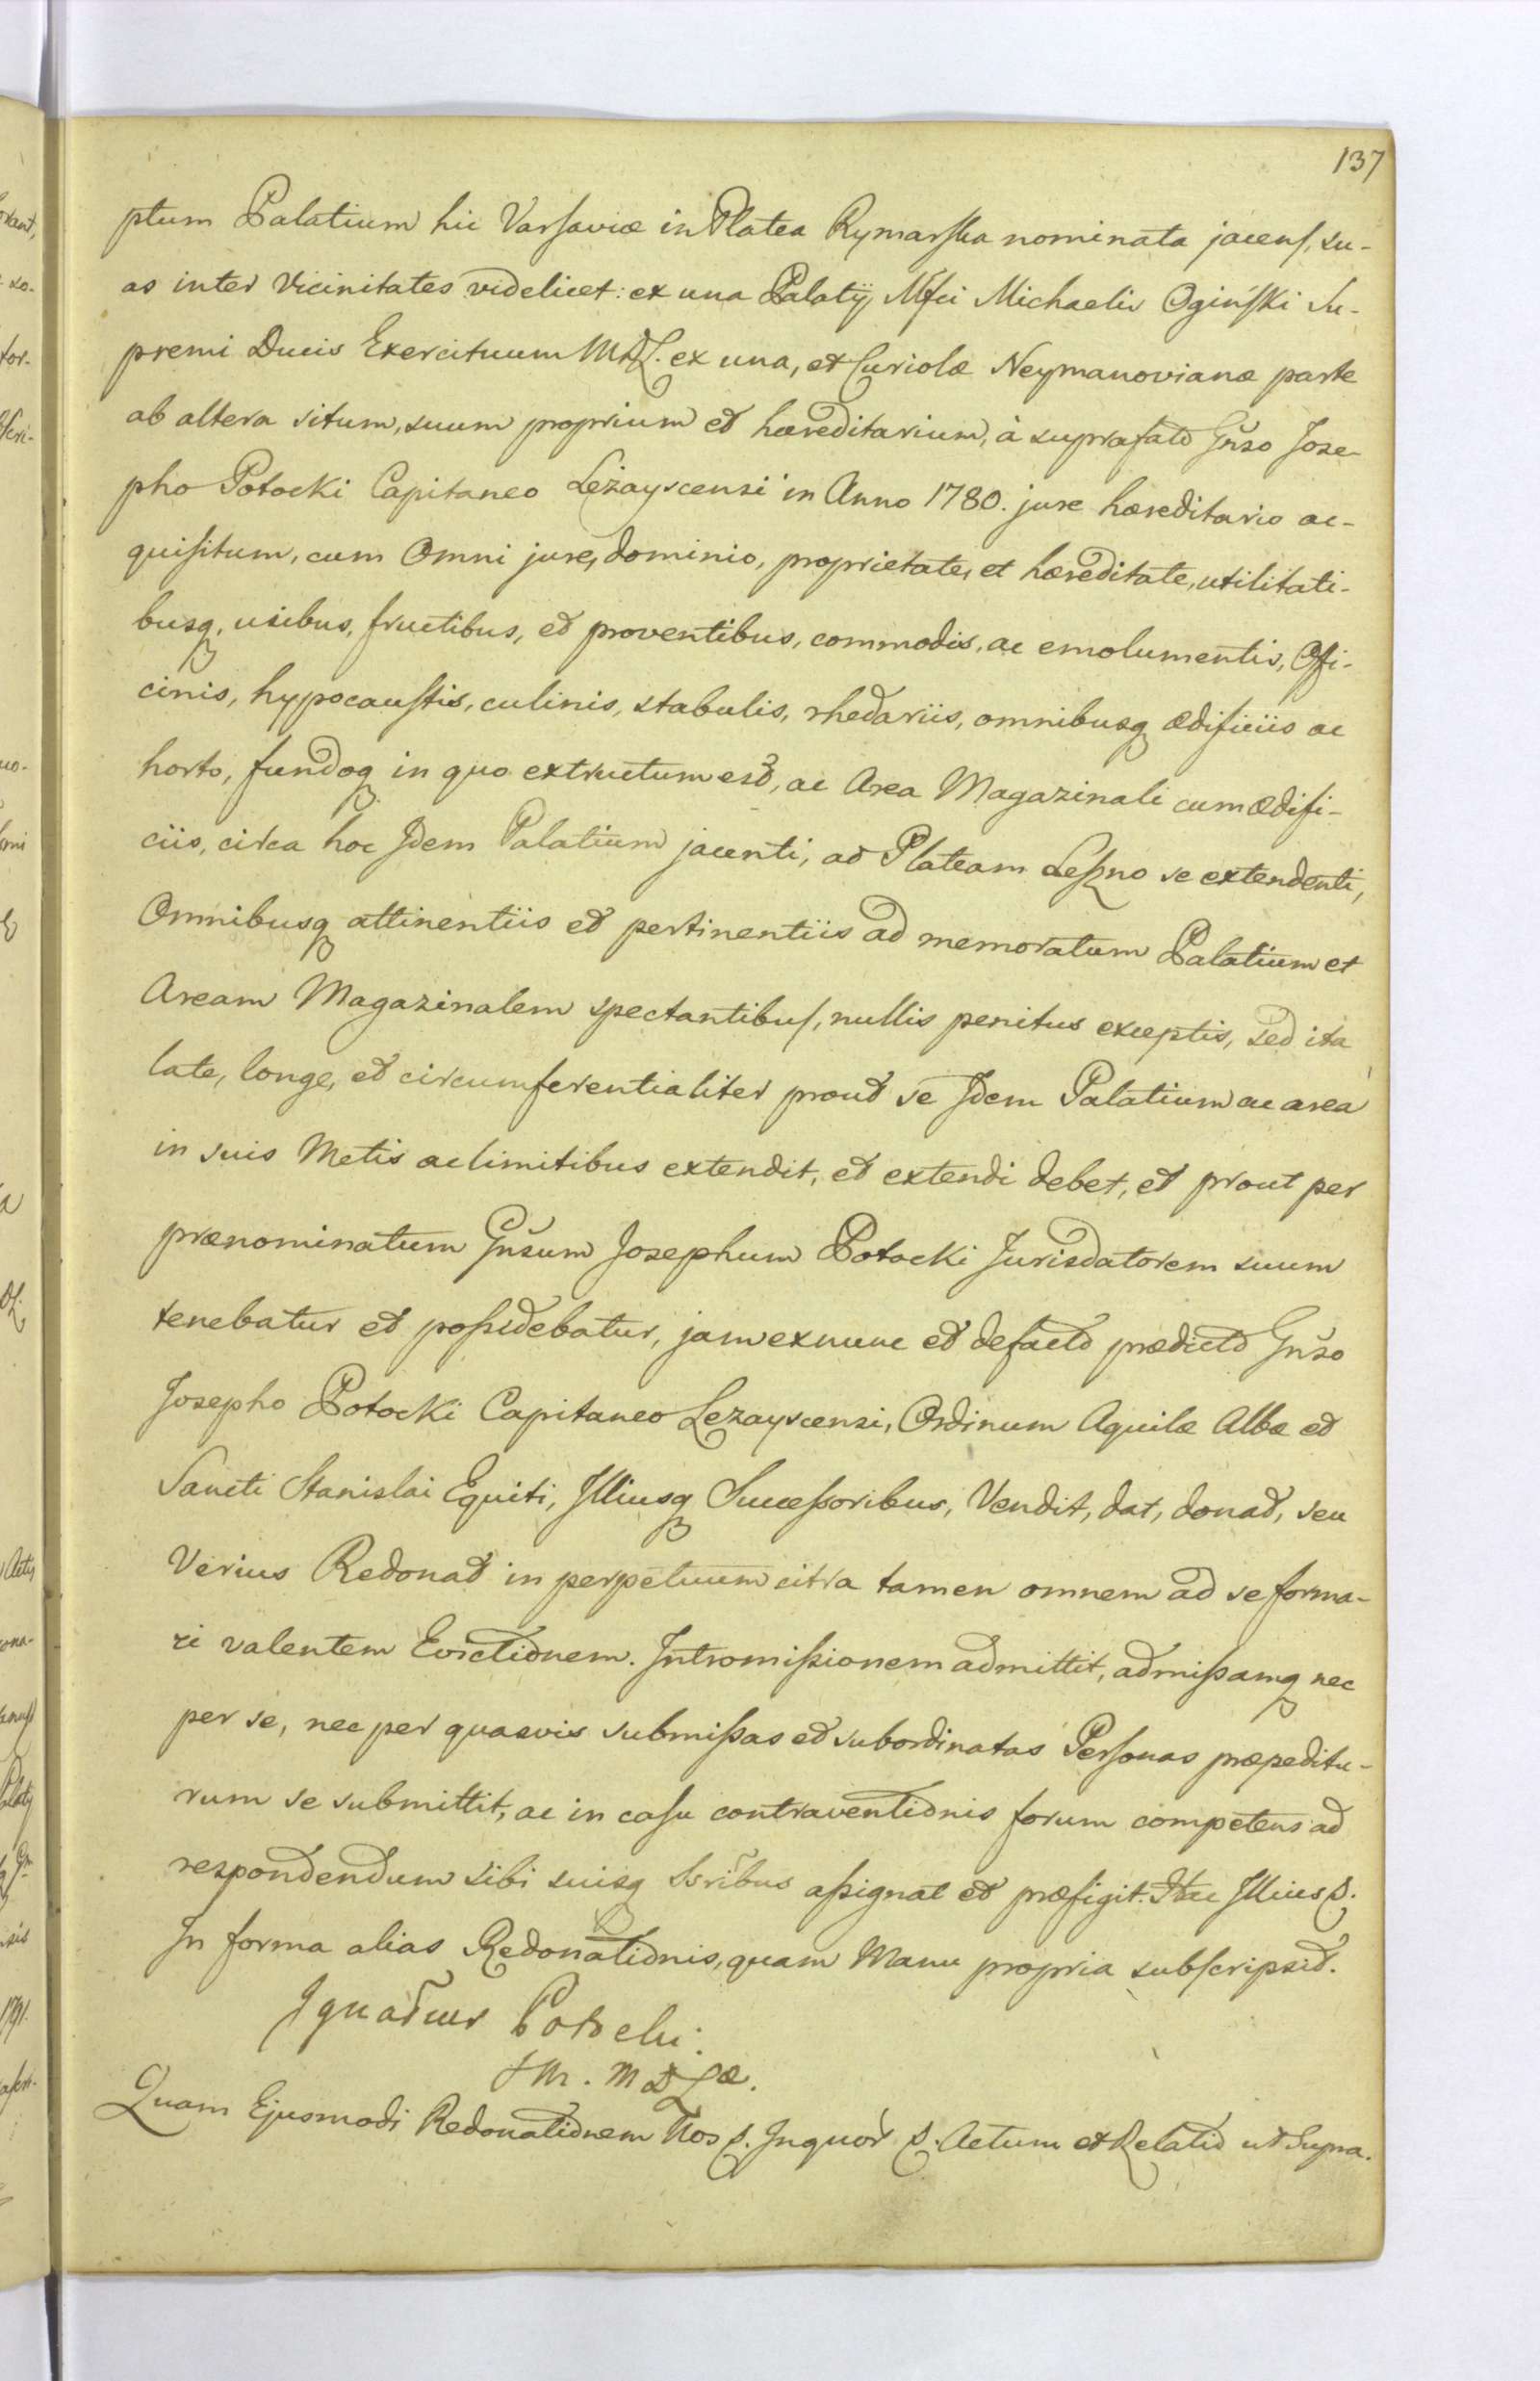 137
ptum Palatium hic Varsaviæ in Platea Rymarska nominata jacens, su-
as inter Vicinitates videlicet: ex una Palatÿ Mfci Michaelis Ogiński Su-
premi Ducis Exercituum MDL. ex una, et Curiolæ Neymanovianæ parte
ab altera situm, suum proprium et hæreditarium, à suprafato Gñso Jose-
pho Potocki Capitaneo Leżayscensi in Anno 1780. jure hæreditario ac-
quisitum, cum Omni jure, dominio, proprietate, et hæreditate, utilitati-
busq, usibus, fructibus, et proventibus, commodis, ac emolumentis, Offi-
cinis, hypocaustis, culinis, stabulis, rhedariis, omnibusq ædificiis ac
horto, fundoq in quo extructum est, ac Area Magazinali cum ædifi-
ciis, circa hoc Idem Palatium jacenti, ad Plateam Leszno se extendenti,
Omnibusq attinentiis et pertinentiis ad memoratum Palatium et
Aream Magazinalem spectantibus, nullis penitus exceptis, sed ita
late, longe, et circumferentialiter prout se Idem Palatium ac area
in suis Metis ac limitibus extendit, et extendi debet, et prout per
prænominatum Gñsum Josephum Potocki Jurisdatorem suum
tenebatur et possidebatur, jam ex nunc et defacto prædicto Gñso
Josepho Potocki Capitaneo Lezayscensi, Ordinum Aquilæ Albæ et
Sancti Stanislai Equiti, Illiusq Successoribus, Vendit, dat, donat, seu
Verius Redonat in perpetuum citra tamen omnem ad se forma-
ri valentem Evictionem. Intromissionem admittit, admissamq nec
per se, nec per quasvis submissas et subordinatas Personas præpeditu-
rum se submittit, ac in casu contraventionis forum competens ad
respondendum sibi suisq Ssribus assignat et præfigit. Hac Illius p.
In forma alias Redonationis, quam Manu propria subscripsit.
Ignatius Potocki:
MDLæ.
Quam Ejusmodi Redonationem Nos p. Inquor p. Actum et Relatio ut Supra.